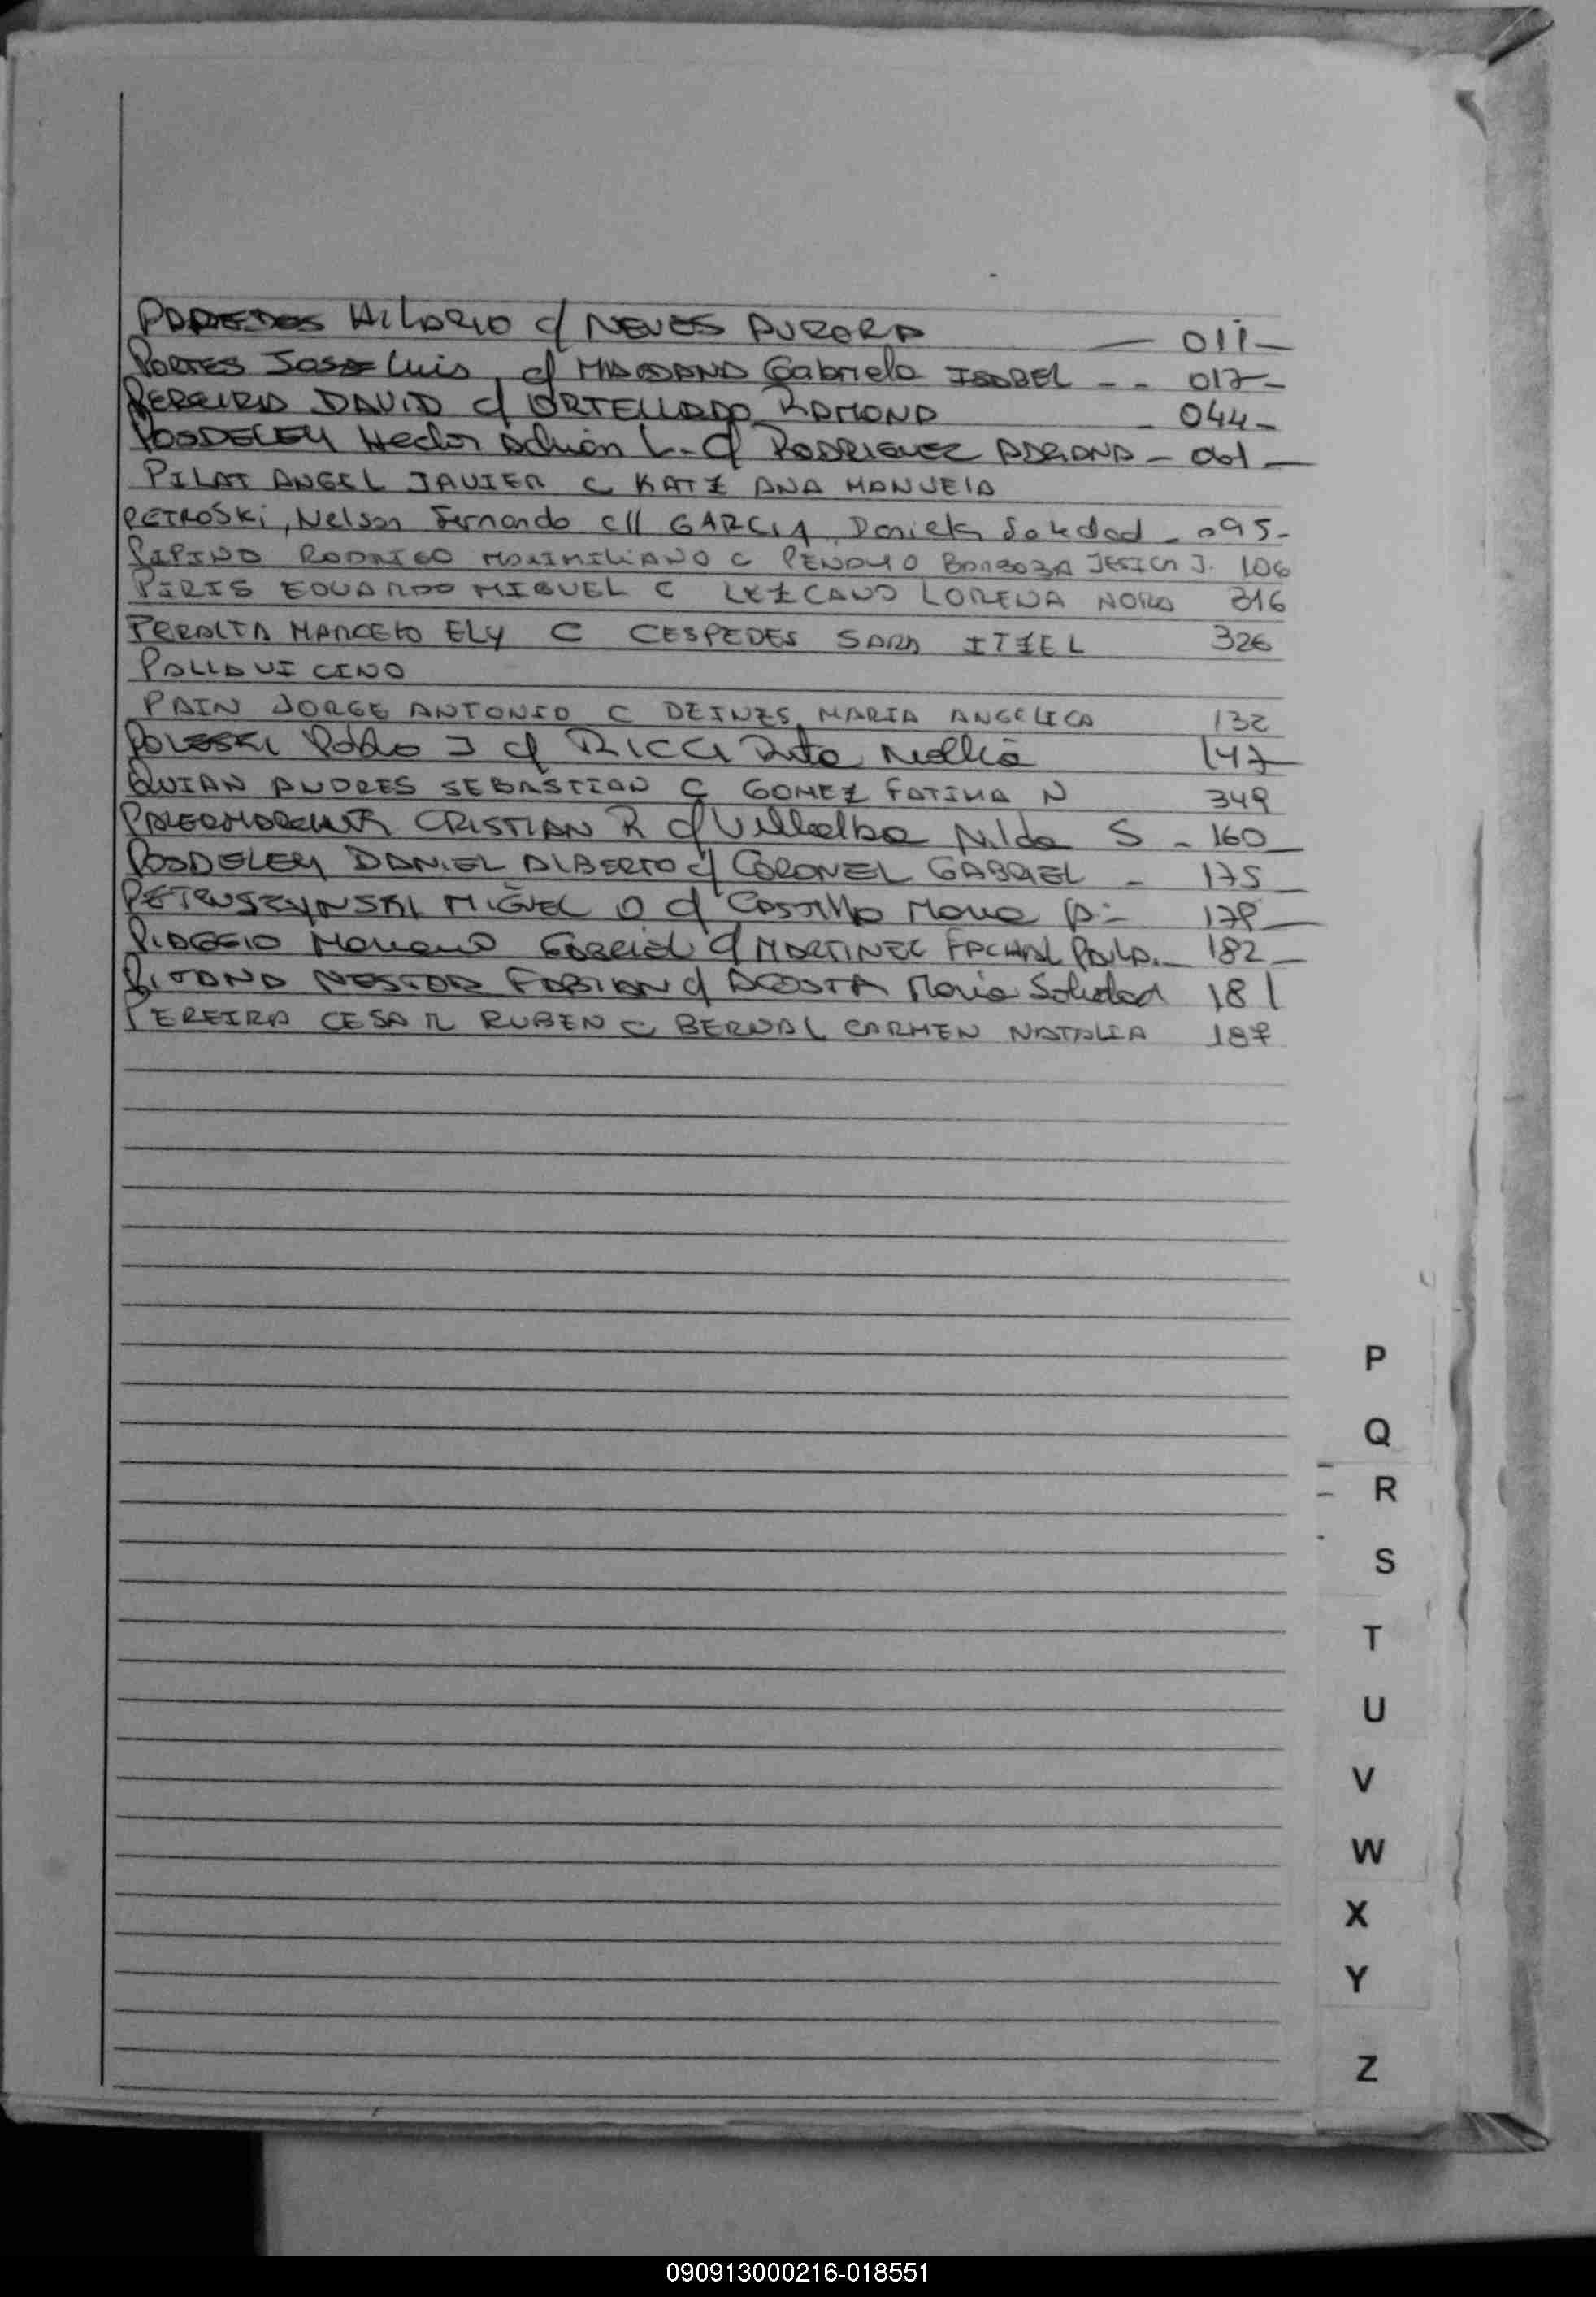 PAREDES HILARIO c/ NEVES AURORA — 011 —
PORTES JOSE Luis c/ Gabriela ISABEL - - 017 -
PEREIRA DAVID c/ ORTELLADO RAMONA - 044 -
POSDELEY Hector Adrián L. c/ RODRIGUEZ ADRIANA - 061 —
PILAT ANGEL JAVIER C KATZ ANA MANUELA
PETROSKi, Nelson Fernando c// GARCIA, Daniela Soledad - 095 -
RODRIGO MAXIMILIANO C BARBOZA JESICA J. 106
PIRIS EDUARDO MIGUEL C LEZCANO LORENA NORA 316
PERALTA MARCELO ELY C CESPEDES SARA ITZEL 326
PALLAVICINO
PAIN JORGE ANTONIO C DEINES MARIA ANGELICA 132
POLESKI Pablo J c/ RICCI Rita 147
QUIAN ANDRES SEBASTIAN C GOMEZ FATIMA N 349
CRISTIAN R c/ Villalba Nilda S - 160
POSDELEY DANIEL ALBERTO c/ CORONEL GABRIEL - 175
MIGUEL O c/ Castillo Maria 178
PIAGGIO Mariano GABRIEL c/ MARTINEZ PAULA. 182
NESTOR FABIAN c/ ACOSTA Maria Soledad 181
PEREIRA CESAR RUBEN C BERNAL CARMEN NATALIA 187
P
Q
R
S
T
U
V
W
X
Y
Z
090913000216-018551